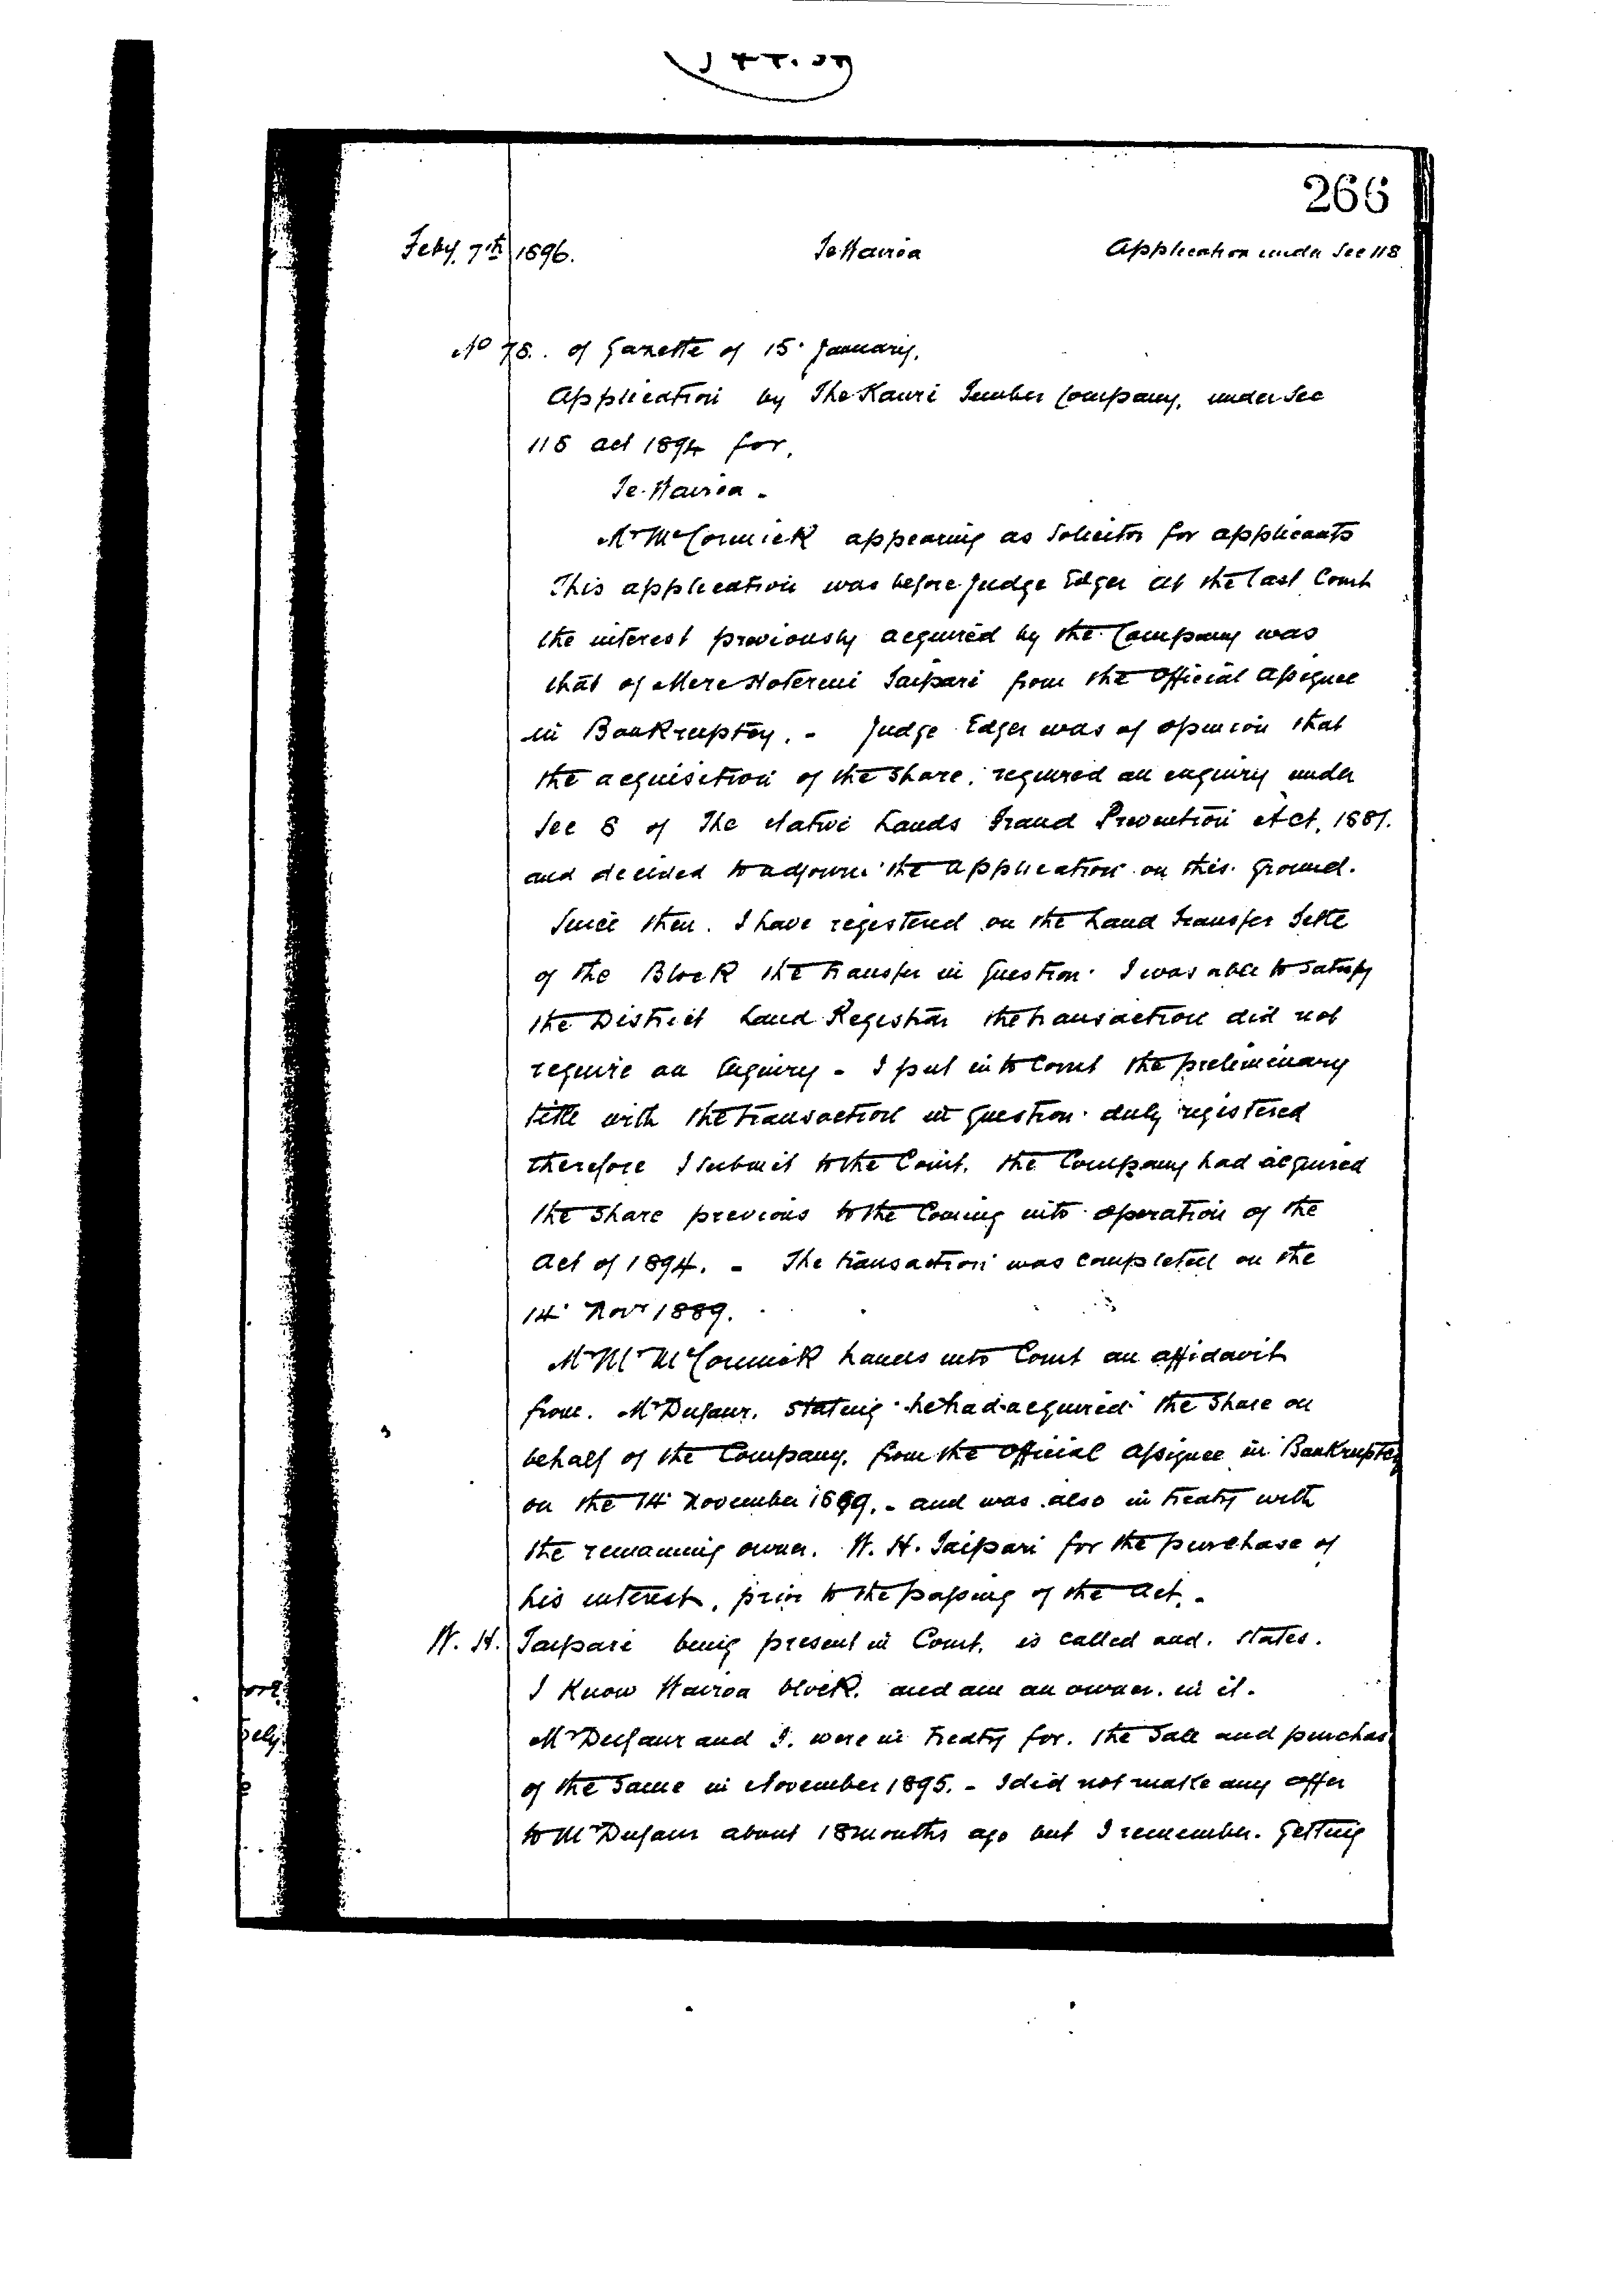 266
Feby. 7th 1896. Te Wairoa Application under Sec 118
No 78. of Gazette of 15 January.
Application by The Kauri Timber Company, under Sec
118 Act 1894 for,
Te Wairoa -
Mr McCormick appearing as Solicitor for applicants
This application was before Judge Edger at the last Court
the interest previously acquired by the Company was
that of Mere Hotereni Taipari from the Official Assignee
in Bankruptcy. - Judge Edger was of opinion that
the acquisition of the share, required an enquiry under
Sec 8 of The Native Lands Fraud Prevention Act, 1881.
and decided to adjourn the application on this ground.
Since then. I have registered on the Land Transfer Title
of the Block the transfer in question. I was able to satisfy
the District Land Registrar the transaction did not
require an Inquiry - I put into Court the preliminary
title with the transaction in question duly registered
therefore I submit to the Court, the Company had acquired
the share previous to the Coming into operation of the
Act of 1894. - The transaction was completed on the
14 Novr 1889.
McCormick hands into Court an affidavit
from. Mr Dufaur, stating he had acquired the share on
behalf of the Company, from the Official Assignee in Bankruptcy
on the 14 November 1889. - and was also in treaty with
the remaining owner. W. H. Taipari for the purchase of
his interest, prior to the passing of the Act. -
W. H. Taipari being present in Court, is called and. states.
I Know Wairoa block, and am an owner. in it.
Mr Dufaur and I. were in treaty for. the sale and purchas
of the same in November 1895. - I did not make any offer
to Mr Dufaur about 18 months ago but I remember. getting